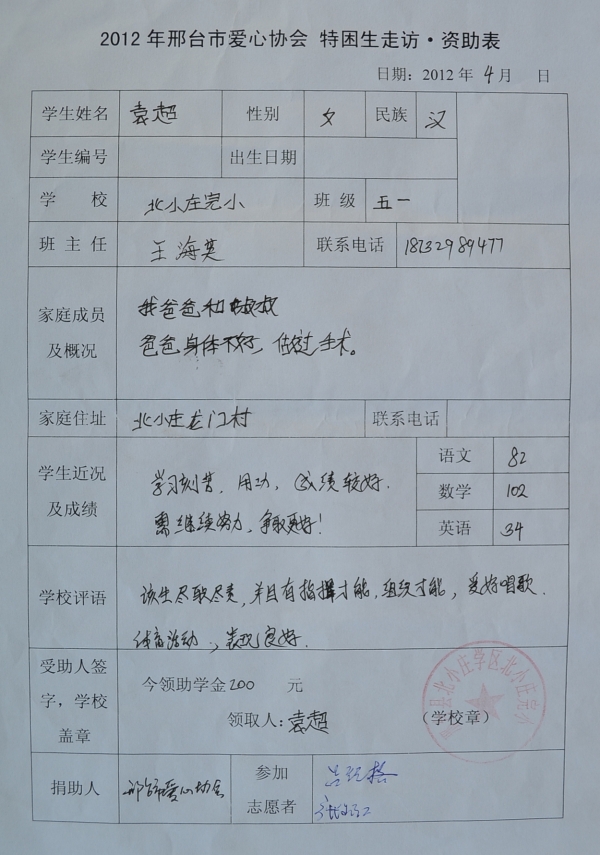 2012年邢台市爱心协会 特困生走访·资助表
日期：2012 年 4 月 日
学生姓名 袁超 性别 女 民族 汉
学生编号 出生日期
学 校 北小庄完小 班 级 五一
班 主 任 王海英 联系电话 18232989477
家庭成员 我爸爸和叔叔
及概况 爸爸身体不好，做过手术。
家庭住址 北小庄龙门村 联系电话
语文 82
学生近况 学习刻苦，用功，成绩较好. 数学 102
及成绩 需继续努力，争取更好！ 英语 34
学校评语 该生尽职尽责，并且有指挥才能，组织才能，爱好唱歌.
体育活动，表现良好.
受助人签
字，学校 今领助学金200 元
盖章 领取人：袁超 （学校章）
县北小庄学区北小庄完小
捐助人 邢台市爱心协会 参加
志愿者